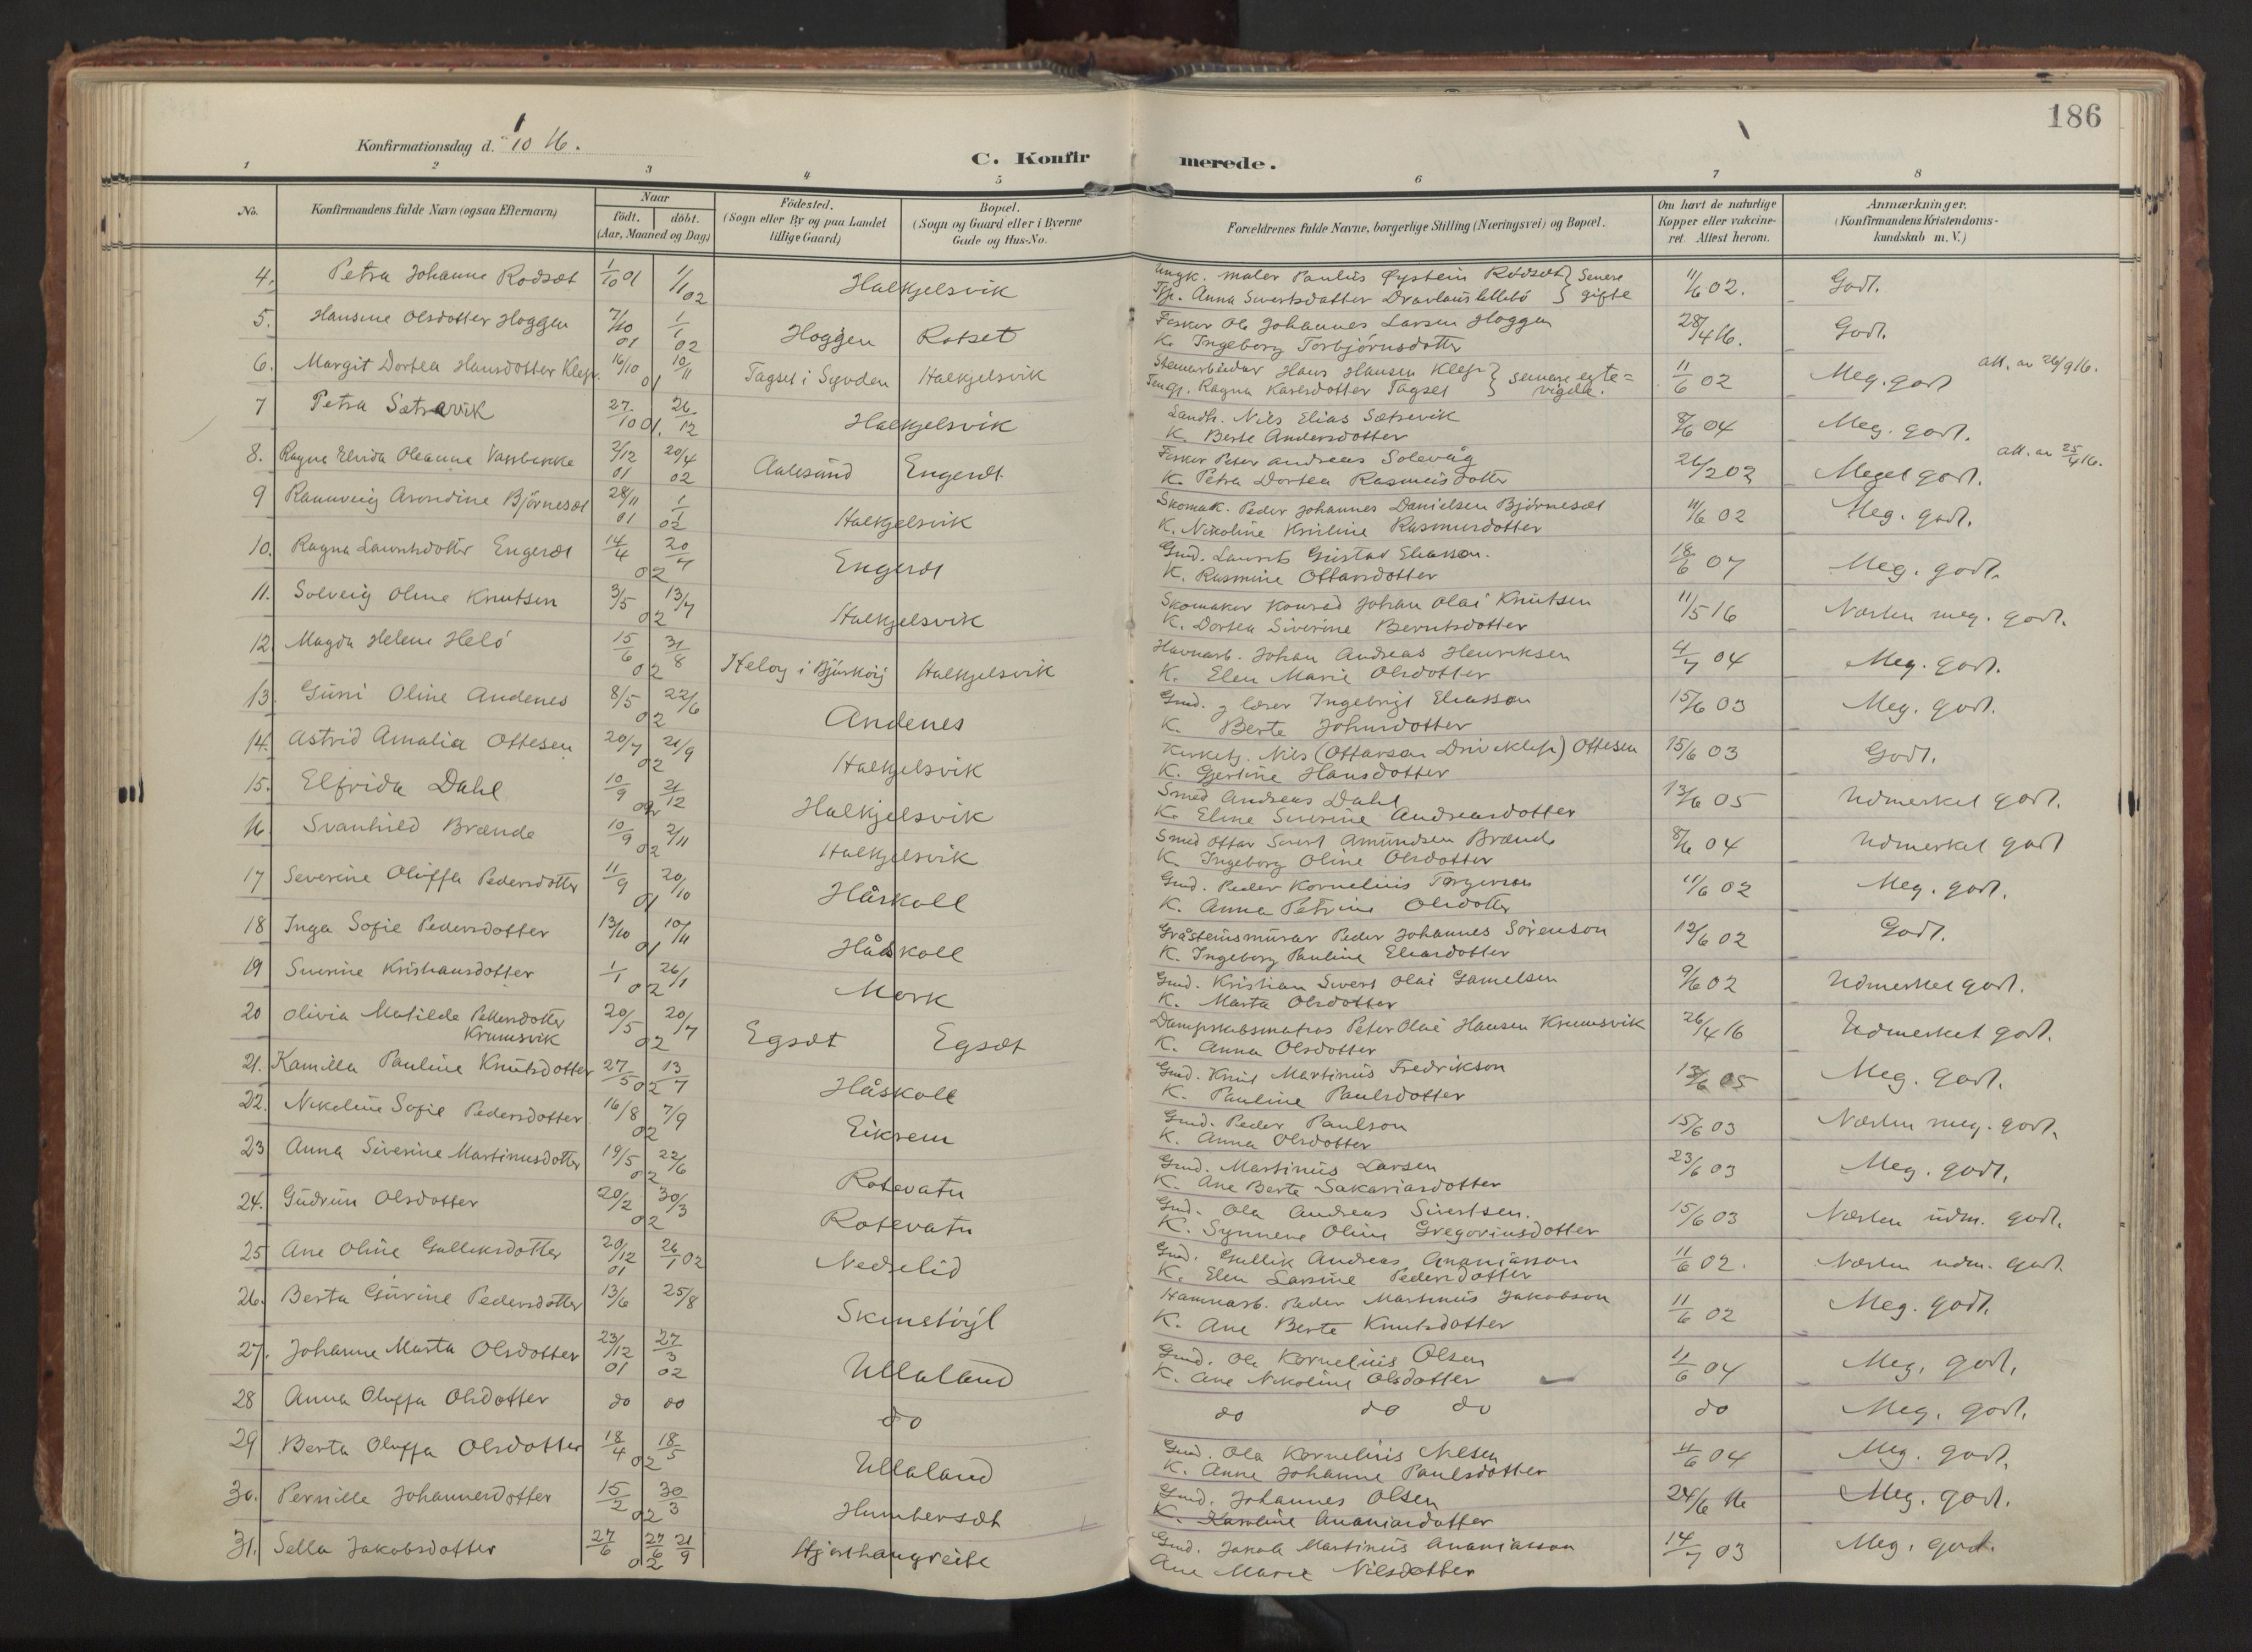 186
Konfirmationsdag d. 1/10 16.
C. Konfirmerede.
1 2 3 4 5 6 7 8
No.
Konfirmandens fulde Navn (ogsaa Efternavn)
Naar
födt. döbt.
(Aar, Maaned og Dag)
Födested.
(Sogn eller By og paa Landet
tillige Gaard)
Bopæl.
(Sogn og Gaard eller i Byerne
Gade og Hus-No.
Forældrenes fulde Navne, borgerlige Stilling (Næringsvei) og Bopæl.
Om havt de naturlige
Kopper eller vakcine-
ret. Attest herom.
Anmærkninger.
(Konfirmandens Kristendoms-
kundskab m. V.)
4. Petra Johanne Rodsæt 1/10 01 1/1 02 Halkjelsvik
Ungk. maler Paulus Øystein Rødsæt } senere
Tjp. Anna Sivertsdatter Dravlaus } gifte
11/6 02. Godt.
5. Hansine Olsdotter Hoggen 7/10 01 1/1 02 Hoggen Rotset
Fisker Ole Johannes Larsen Hoggen
K. Ingeborg Torbjörnsdotter
28/4 16. Godt.
6. Margit Dortea Hansdotter Klep. 16/10 10/11 01 Tagset i Syvden Halkjelsvik
Stenarbeidar Hans Hansen Klep } senere egte=
Ragna Karlsdotter Tagset } vigde.
11/6 02 Meg. godt att. av 26/9 16.
7 Petra Sætrevik 27/10 01. 26/12 Halkjelsvik
Landh. Nils Elias Sætrevik
K. Berte Andersdotter
8/6 04 Meg. godt.
8. Ragna Elvida Oleanna Vassbakke 2/12 01 20/4 02 Aalesund Engeset
Fisker Peter Andreas Solevåg
K. Petra Dortea Rasmusdotter
26/2 02 Meget godt. att. av 25/4 16.
9 Rannveig Arondine Björnesæt 28/11 01 1/1 02 Halkjelsvik
Skomak. Peder Johannes Danielsen Björnesæt
K. Nikoline Kristine Rasmusdotter
11/6 02 Meg. godt.
10. Ragna Lauritsdotter Engeset 14/4 20/7 02 Engeset
Grd. Laurits Gustav Eliasson.
K. Rasmine Ottarsdotter
18/6 07 Meg. godt.
11. Solveig Oline Knutsen 3/5 13/7 02 Halkjelsvik
Skomaker Konrad Johan Olai Knutsen
K. Dortea Siverine Berntsdotter
11/5 16 Næsten meg. godt.
12. Magda Helene Helö 15/6 31/8 02 Heloy i Bjarköy Halkjelsvik
Havnarb. Johan Andreas Henriksen
K. Elen Marie Olsdotter
4/7 04 Meg. godt.
13. Guni Oline Andenes 8/5 22/6 02 Andenes
Grd. og lærer Ingebrigt Eliasson
K. Berte Johnsdotter
15/6 03 Meg. godt.
14. Astrid Amalia Ottesen 20/7 21/9 02 Halkjelsvik
Kirketj. Nils (Ottarson Driveklep) Ottesen
K. Gjertine Hansdotter
15/6 03 Godt.
15. Elfrida Dahl 10/9 21/12 02 Halkjelsvik
Smed Andreas Dahl
K. Eline Siverine Andreasdotter
13/6 05 Udmerket godt.
16 Svanhild Brænde 10/9 2/11 02 Halkjelsvik
Smed Ottar Sivert Amundsen Brænde
K. Ingeborg Oline Olsdotter
8/6 04 Udmerket godt
17 Severine Oluffa Pedersdotter 11/9 20/10 01 Håskoll
Grd. Peder Kornelius Torgerson
K. Anna Petrine Olsdotter
11/6 02 Meg. godt.
18 Inga Sofie Pedersdotter 13/10 10/11 01 Håskoll
Gråsteinsmurar Peder Johannes Sörenson
K. Ingeborg Pauline Eliasdotter
12/6 02 Godt.
19 Siverine Kristiansdotter 1/1 26/1 02 Mork
Grd. Kristian Sivert Olai Gamelsen
K. Marta Olsdotter
9/6 02 Udmerket godt.
20 Olivia Matilde Pettersdotter
Krumsvik 20/5 20/7 02 Egsæt Egsæt
Dampskibsmatros Peter Olai Hansen Krumsvik
K. Anna Olsdotter
26/4 16 Udmerket godt.
21. Kamilla Pauline Knutsdotter 27/5 13/7 02 Håskoll
Grd. Knut Martinus Fredrikson
K. Pauline Paulsdotter
13/6 05 Meg. godt.
22. Nikoline Sofie Pedersdotter 16/8 7/9 02 Eiksem
Grd. Peder Paulson
K. Anna Olsdotter
15/6 03 Næsten meg. godt.
23 Anna Siverine Martinusdotter 19/5 22/6 02 Rotevatn
Grd. Martinus Larsen
K. Ane Berte Sakariasdotter
23/6 03 Meg. godt.
24. Gudrun Olsdotter 20/2 30/3 02 Rotevatn
Grd. Ola Andreas Sivertsen.
K. Synneve Oline Gregoriusdotter
15/6 03 Næsten udm. godt.
25 Ane Oline Gulleiksdotter 20/12 01 26/1 02 Nedrelid
Grd. Gullik Andreas Ananiasson
K. Elen Larsine Pedersdotter
11/6 02. Næsten udm. godt.
26. Berta Gurine Pedersdotter 13/6 25/8 Skinstöyl
Hamnarb. Peder Martinus Jakobson
K. Ane Berte Knutsdotter
11/6 02 Meg. godt.
27. Johanne Marta Olsdotter 23/12 01 27/3 02 Ullaland
Grd. Ole Kornelius Olsen
K. Ane Nikoline Olsdotter
11/6 04 Meg. godt.
28 Anna Oluffa Olsdotter do do do
do do do do Meg. godt.
29 Berta Oluffa Olsdotter 18/4 18/5 02 Ullaland
Grd. Ola Kornelius Nilsen
K. Anne Johanne Paulsdotter
11/6 04 Meg. godt.
30. Pernille Johannesdotter 15/2 30/3 02 Humberset
Grd. Johannes Olsen
K. Karoline Ananiasdotter
24/6 16 Meg. godt.
31. Sella Jakobsdotter 27/6 27/6 21/9 02 Hjorthaugreite
Grd. Jakob Martinus Ananiasson
Ane Marie Nilsdotter
14/7 03 Meg. godt.